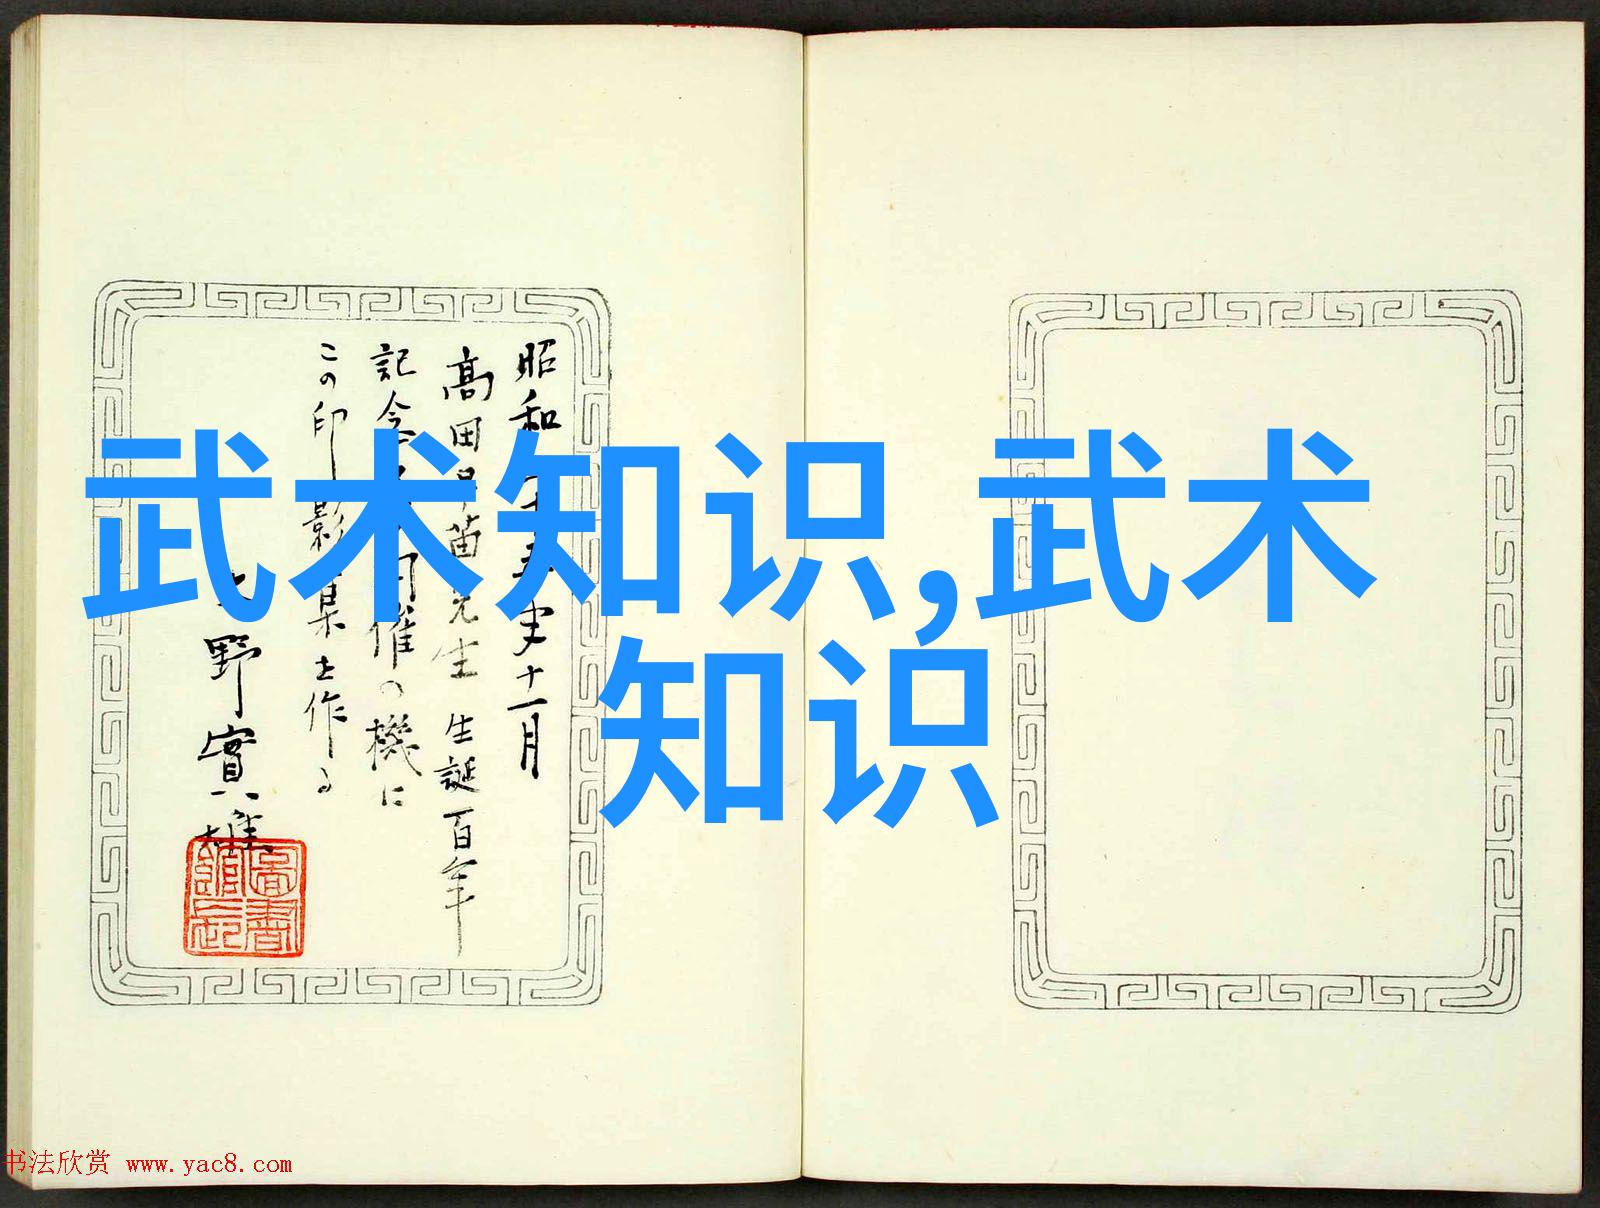 武术知识,武术
知识
昭和十五年十一月
高田早苗先生 生誕百年
記念開催の機に
この印影集を作る
野實雄
圖書館長
书法欣赏 www.yac8.com